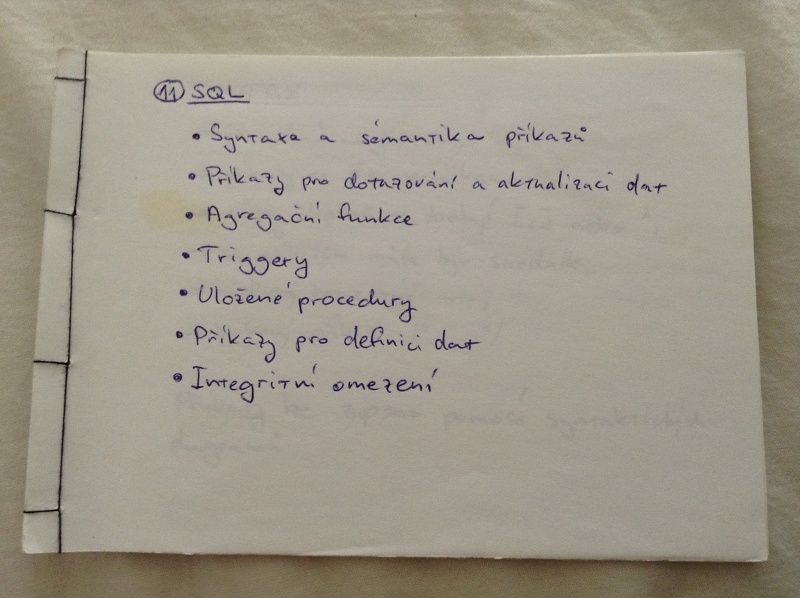 11 SQL
• Syntaxe a sémantika příkazů
• Příkazy pro dotazování a aktualizaci dat
• Agregační funkce
• Triggery
• Uložené procedury
• Příkazy pro definici dat
• Integritní omezení